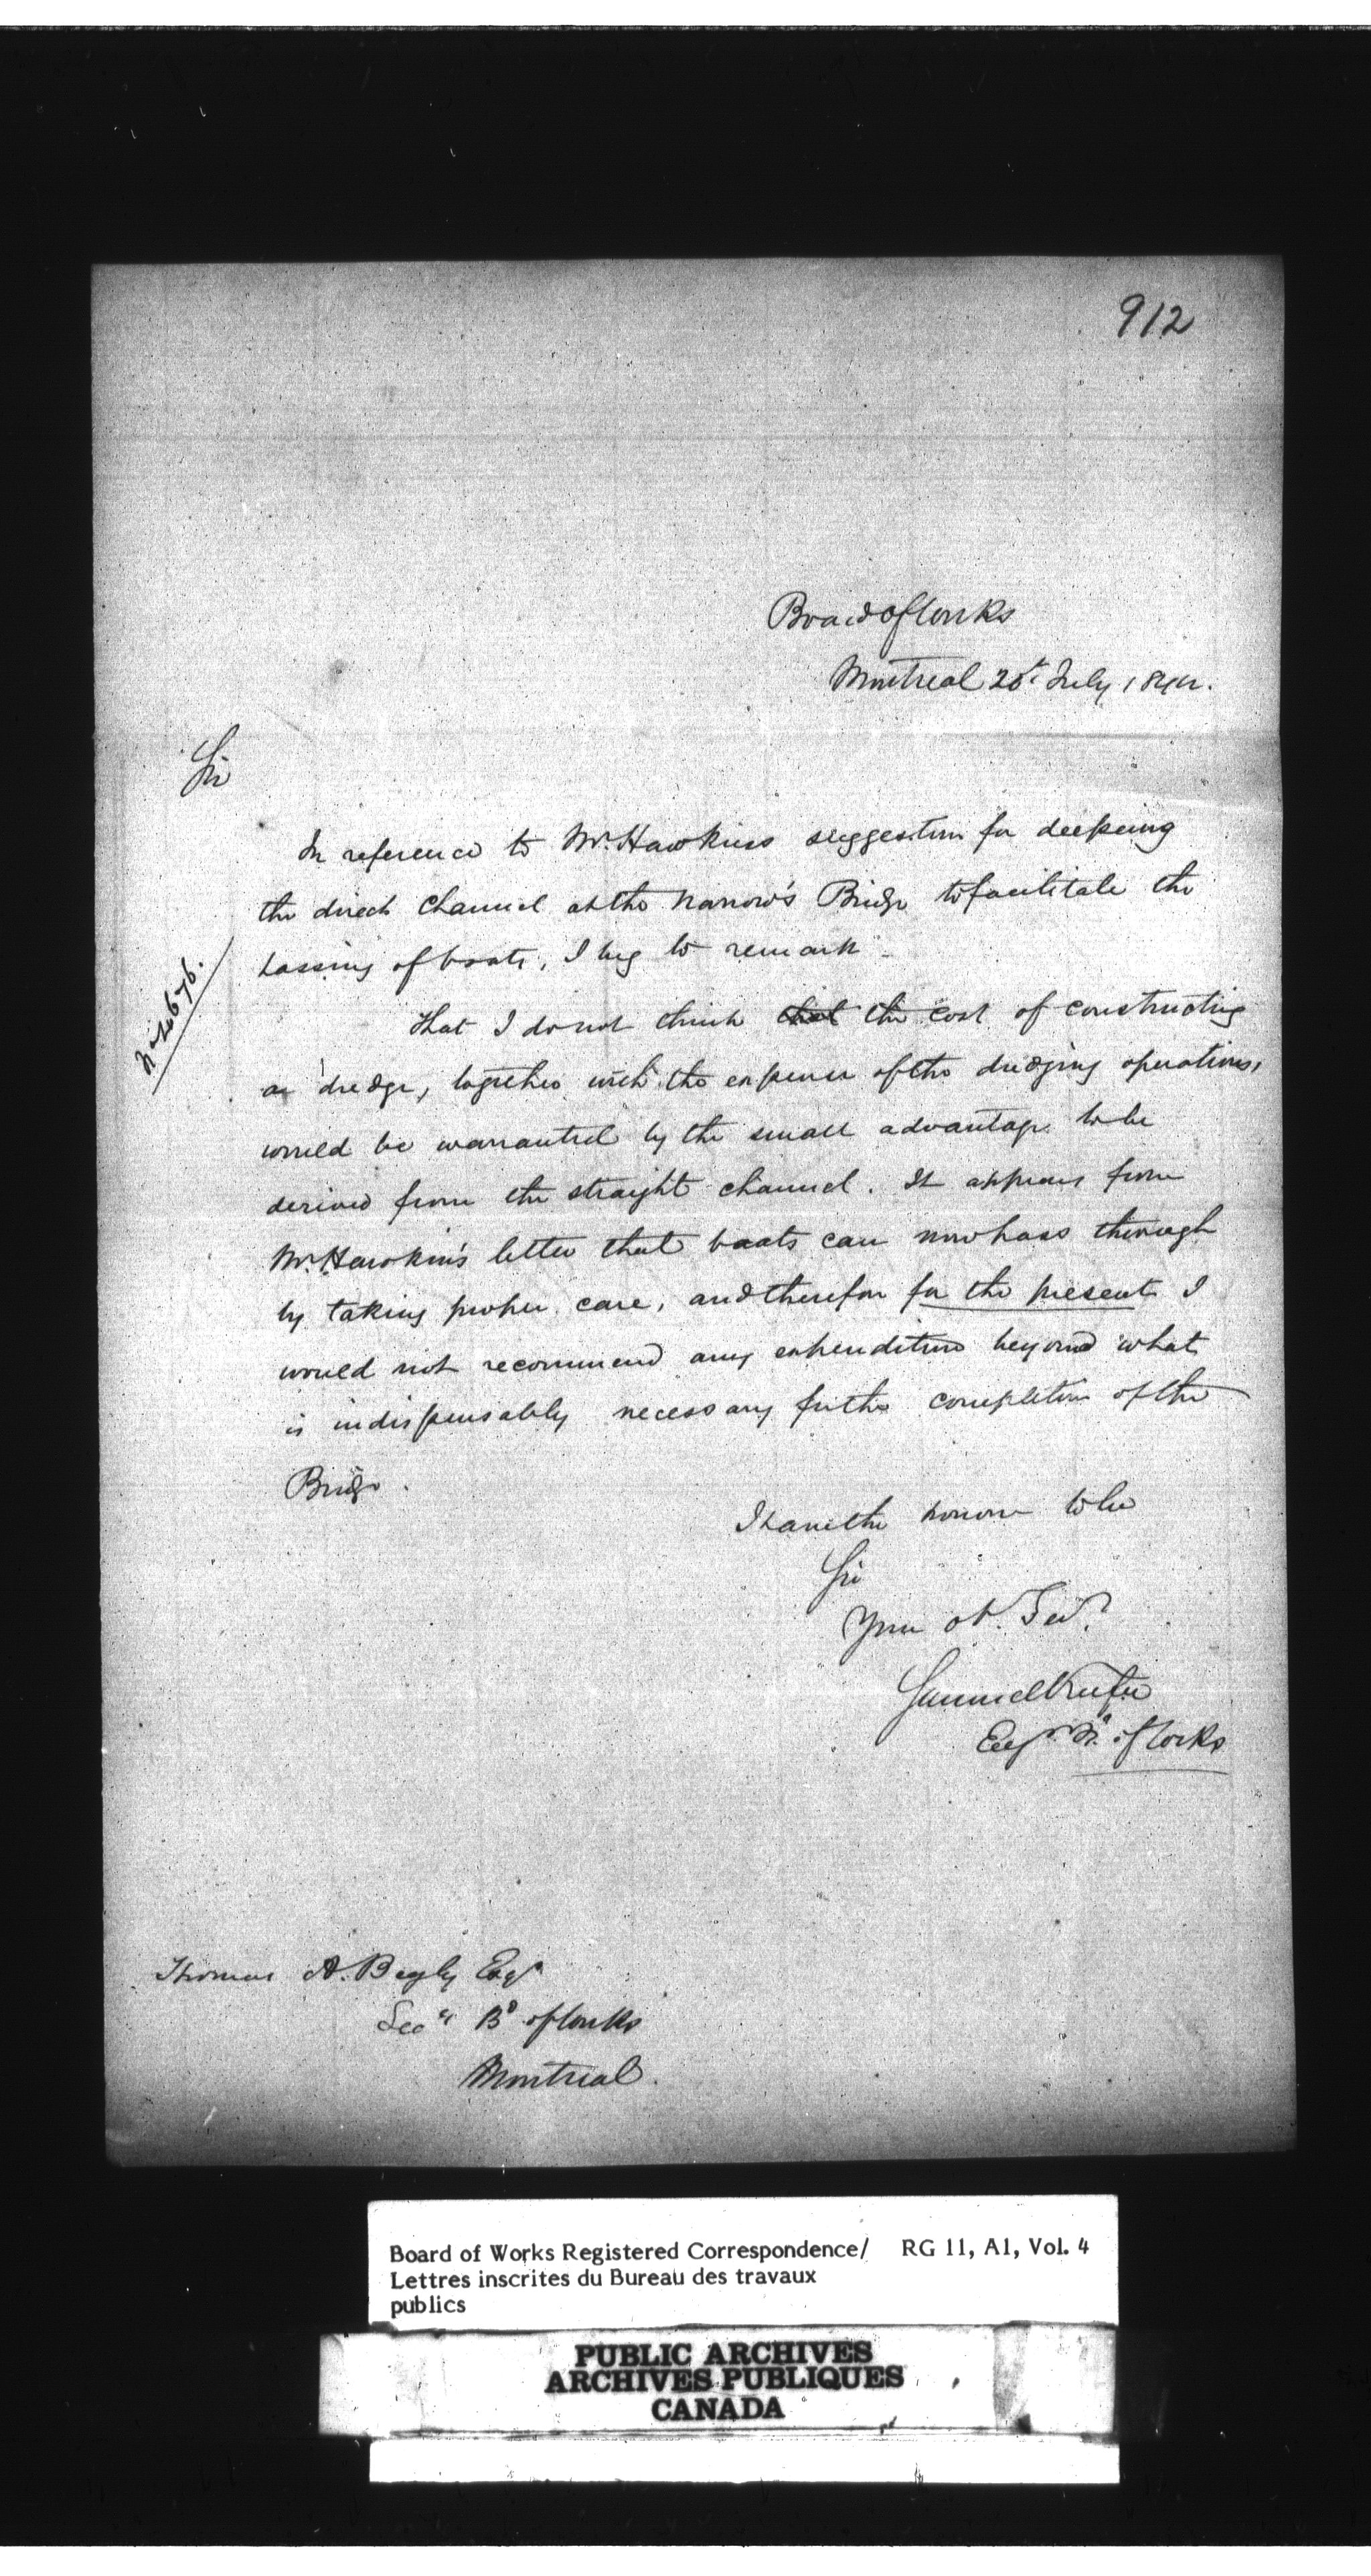 912
Board of Works
Montreal 20th July 1844.
Sir
In reference to Mr. Hawkins suggestion for deepening
the direct channel at the Narrow's Bridge to facilitate the
passing of boats, I beg to remark
No. 4676.
That I do not think that the cost of constructing
a dredge, together with the expense of the dredging operations,
would be warranted by the small advantage to be
derived from the straight channel. It appears from
Mr. Hawkin's letter that boats can now pass through
by taking proper care, and therefore for the present I
would not recommend any expenditure beyond what
is indispensably necessary for the completion of the
Bridge.
I have the honour to be
Sir
Your ob. Servt.
Samuel Keefer
Engr. Bd. of Works
Thomas A. Begly Esqr
Secy Bd of Works
Montreal.
Board of Works Registered Correspondence/ RG 11, A1, Vol. 4
Lettres inscrites du Bureau des travaux
publics
PUBLIC ARCHIVES
ARCHIVES PUBLIQUES
CANADA